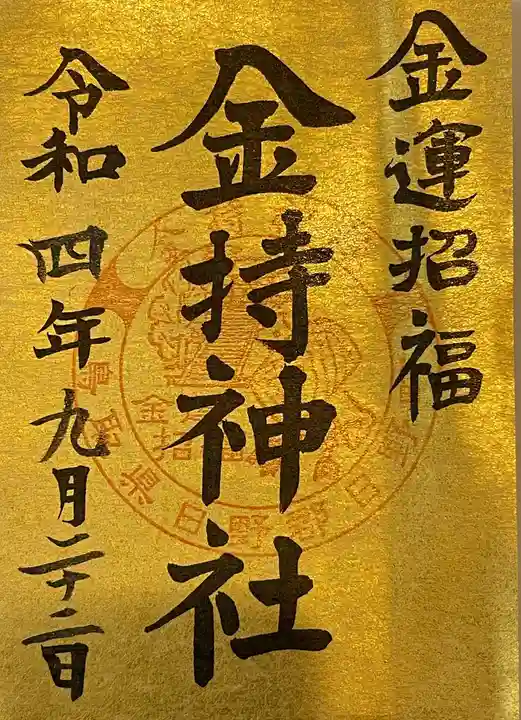 金運招福
金持神社
令和四年九月二十二日
鳥取県日野郡日